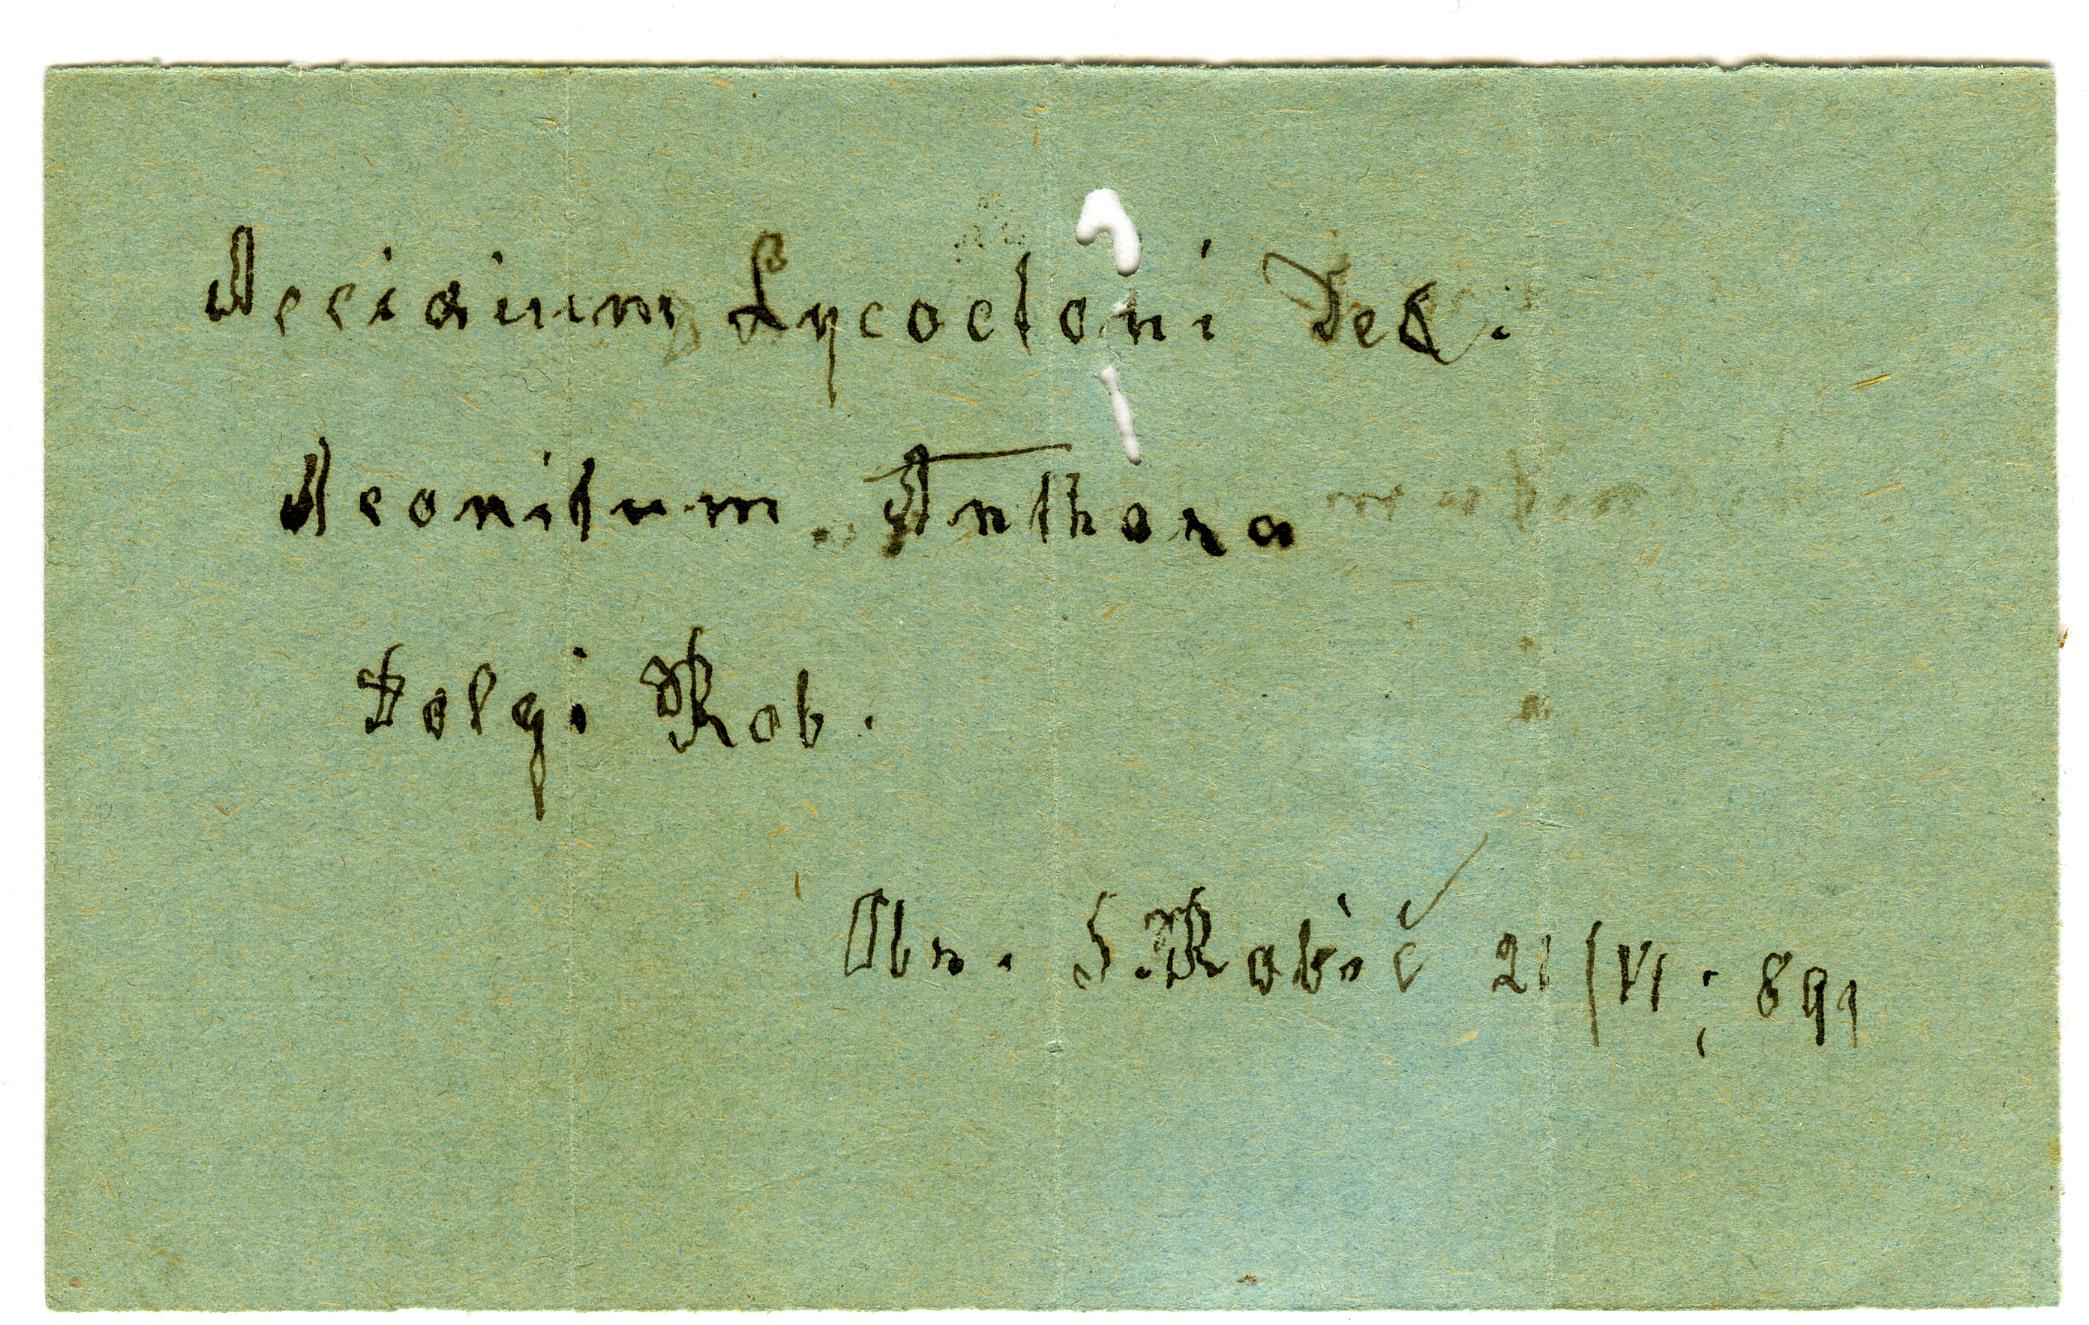 Aecidium Lycoctoni DeC.
Aconitum Anthora
Dolgi Rob.
Obn. S. Robič 21/VI; 891